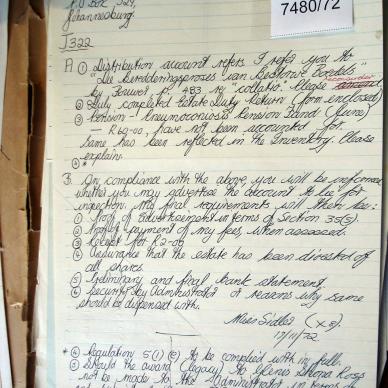 7480/72
P.O Box 529,
Johannesburg
J322
A ① Distribution account refers I refer you to
"Die Beredderingsproses van Bestorwe Boedels"
by p. 483 re "collatio". Please
② Duly completed Estate Duty Return (form enclosed)
③ Pension - Pneumoconiosis Pension Fund (June)
- R60-00, have not been accounted for.
Same has been reflected in the Inventory. Please
explain.
④ *
B. On compliance with the above, you will be informed
whether you may advertise the account to lie for
inspection. My final requirements will then be:
① Proof of advertisement in terms of Section 35(5).
② Proof of payment of my fees, when assessed.
③ Receipt for R2-00
④ Assurance that the estate has been divested of
all shares.
⑤ Preliminary and final bank statement.
⑥ Security by Administrator or reasons why same
should be dispensed with.
Miss Sidler (x8).
17/11/72
* ④ Regulation 5(1)(e) to be complied with in full.
⑤ Should the award (legacy) to Glenis Ross
not be made to the Administrator in terms of